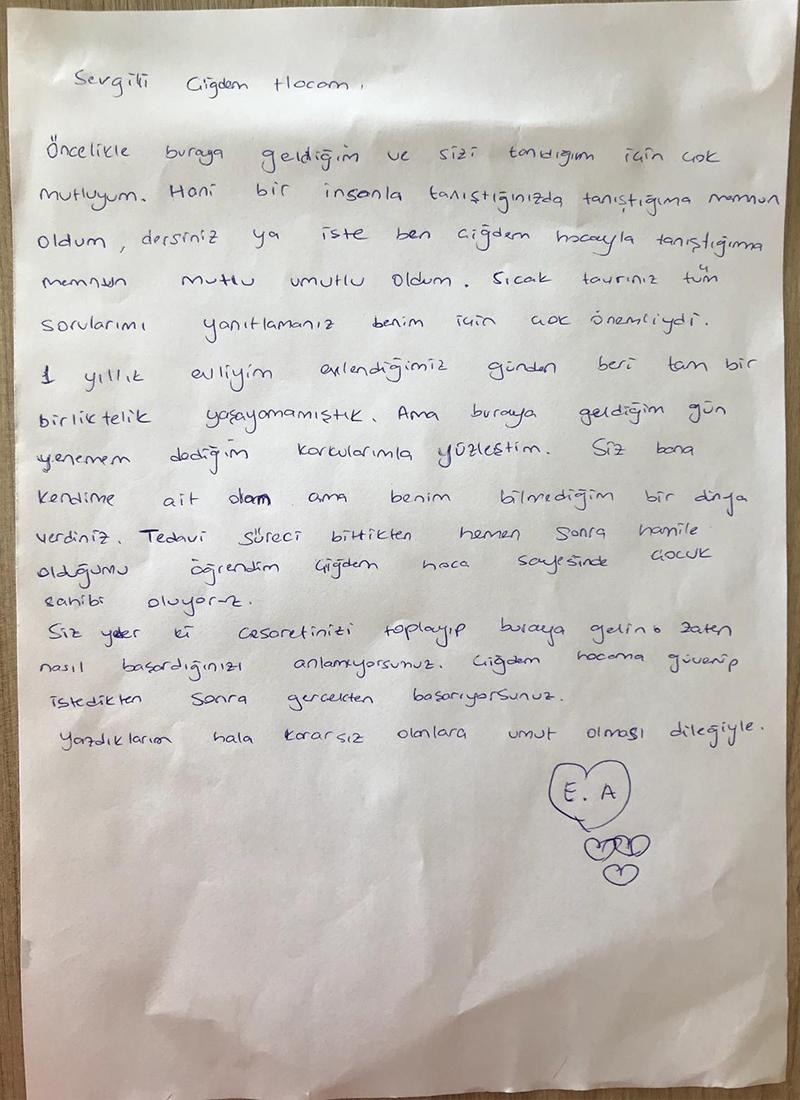 Sevgili Çiğdem Hocam,
Öncelikle buraya geldiğim ve sizi tanıdığım için çok
mutluyum. Hani bir insanla tanıştığınızda tanıştığıma memnun
oldum, dersiniz ya işte ben Çiğdem hocayla tanıştığıma
memnun mutlu umutlu oldum. Sıcak tavrınız tüm
sorularımı yanıtlamanız benim için çok önemliydi.
1 yıllık evliyim evlendiğimiz günden beri tam bir
birliktelik yaşayamamıştık. Ama buraya geldiğim gün
yenemem dediğim korkularımla yüzleştim. Siz bana
kendime ait olan ama benim bilmediğim bir dünya
verdiniz. Tedavi süreci bittikten hemen sonra hamile
olduğumu öğrendim Çiğdem hoca sayesinde çocuk
sahibi oluyoruz.
Siz yeter ki cesaretinizi toplayıp buraya gelin. zaten
nasıl başardığınızı anlamıyorsunuz. Çiğdem hocama güvenip
istedikten sonra gerçekten başarıyorsunuz.
Yazdıklarım hala kararsız olanlara umut olması dileğiyle.
E. A